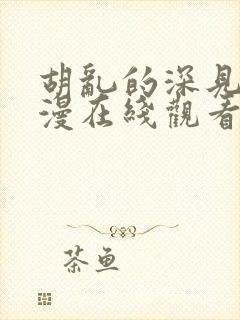 胡亂的深見
漫在綫觀看
茶魚